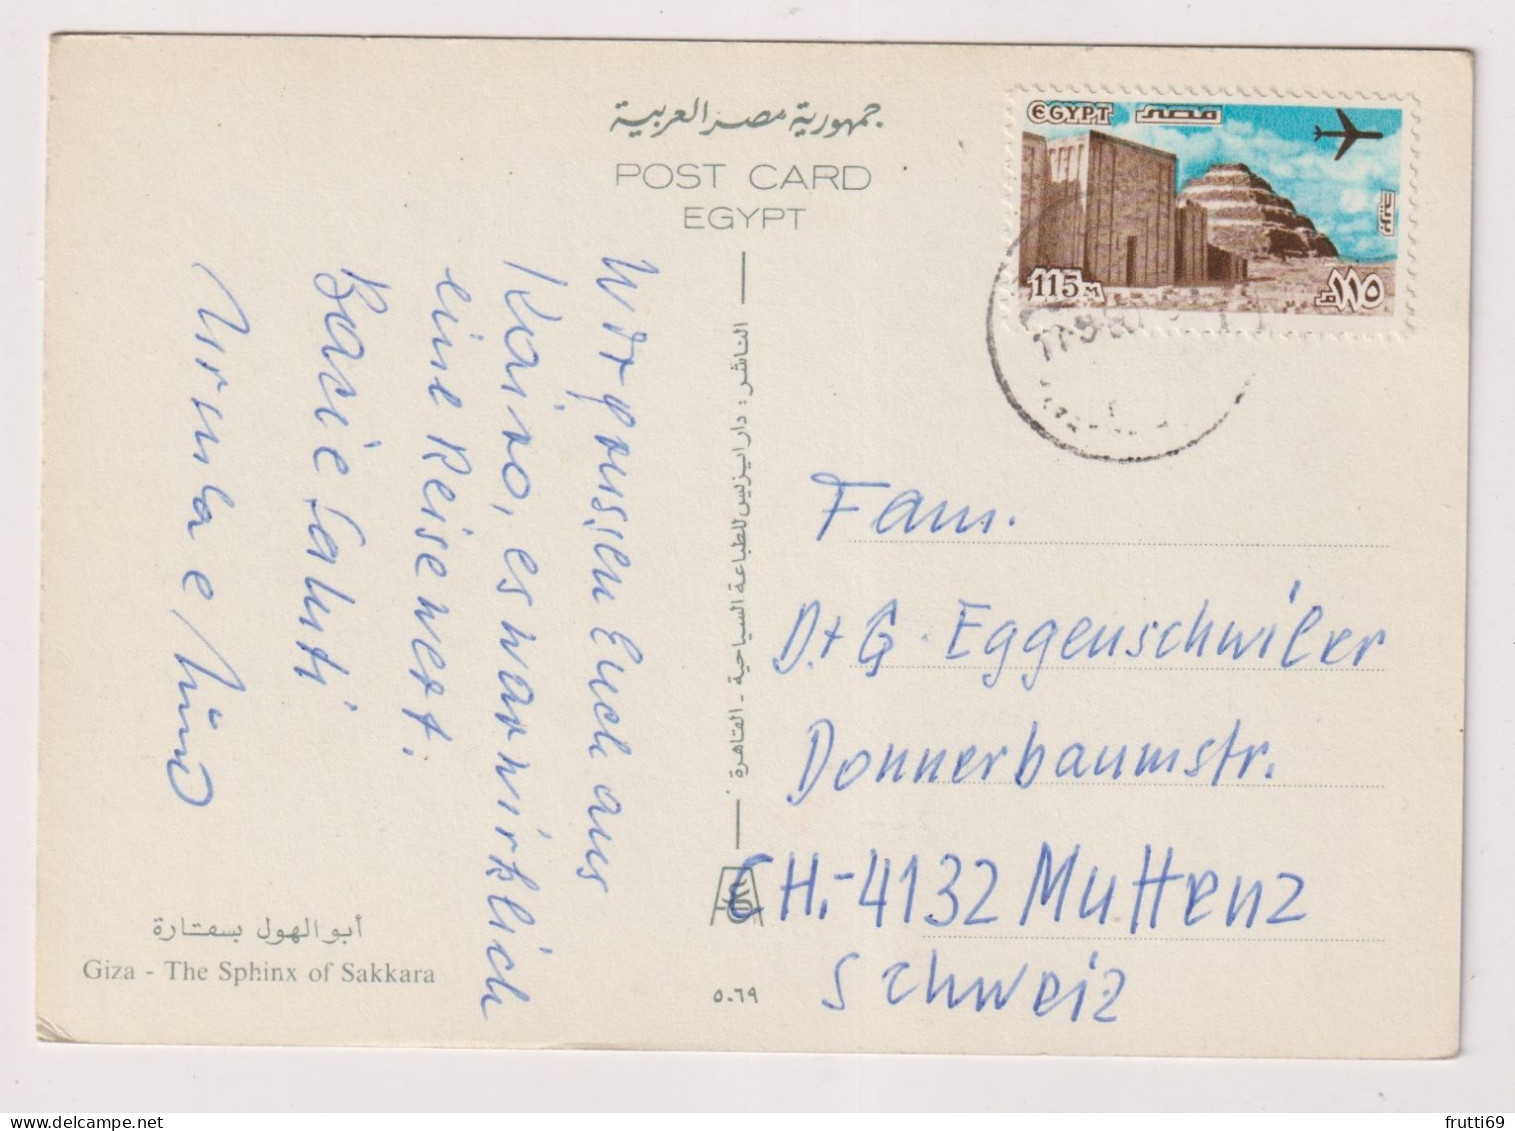 جمهورية مصر العربية
POST CARD
EGYPT
EGYPT مصر
سقارة
115 M
١١٥ م
Wir grüssen Euch aus
Kairo, es war wirklich
eine Reise wert.
Bacie Saluti
Ursula e
الناشر : دار ايزيس للطباعة السياحية - القاهرة
Fam.
D.+G. Eggenschwiler
Donnerbaumstr.
CH.-4132 Muttenz
Schweiz
أبو الهول بسقارة
Giza - The Sphinx of Sakkara
٥٠٦٩
frutti69